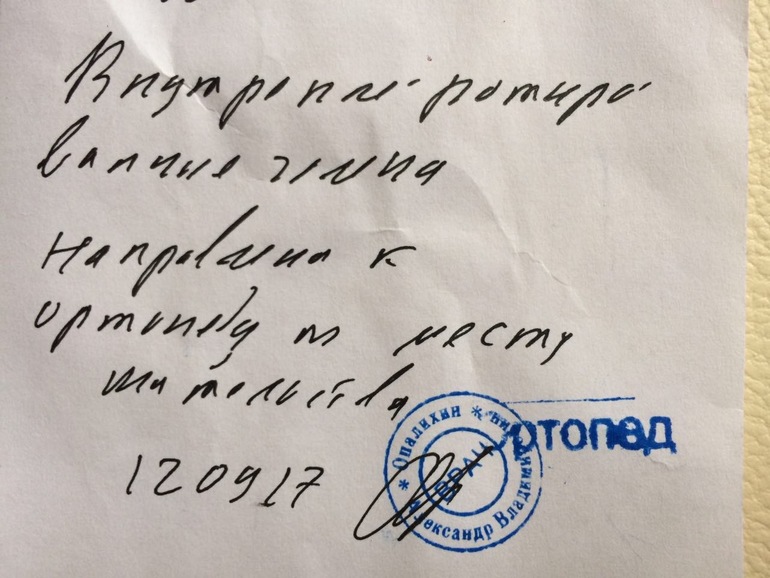 Внутренне ротиро
ванные голена
направлена к
ортопеду по месту
жительства
120917
* Опалихин * Александр Владимир
ВРАЧ
ртопед